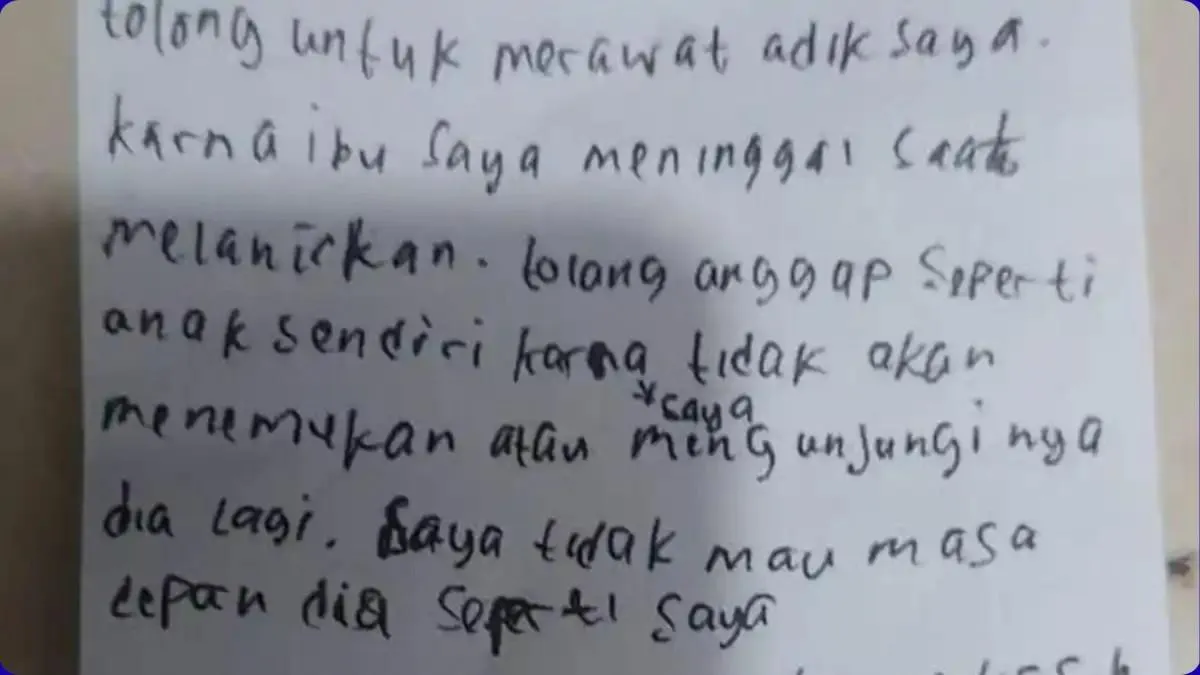 tolong untuk merawat adik saya.
karna ibu saya meninggal saat
melanirkan. tolong anggap seperti
anak sendiri karna tidak akan
*saya
menemukan atau mengunjunginya
dia lagi. saya tidak mau masa
depan dia seperti saya